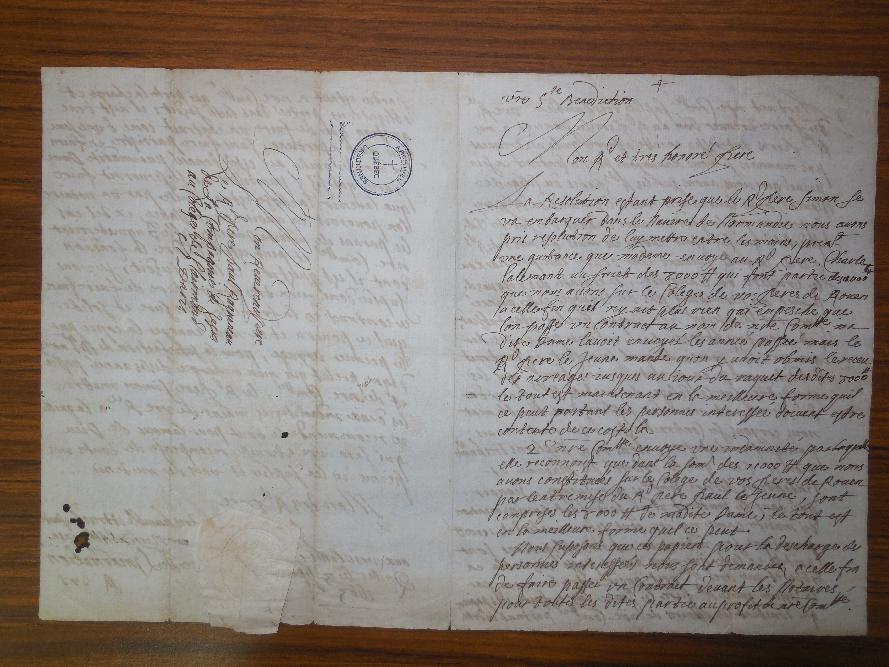 vre Ste Benediction
Mon Rd et tres honoré frere
La Resolution estant prise que le Rd Pere Simon se
va embarquer dans le Navire de Normandie nous avons
pris resolution de luy metre entre les mains,
une quitance que madame envoye au Rd Pere Charle
lallemant un des 7000 ₶ qui font partie des
que nous avons sur le Colege de vos peres de Rouen
acellefin quil ny ait plus rien qui empesche que
lon passe un Contract au nom de nre Comté ma
dite Dame lavoit envoyee les annee passee mais le
Rd Pere le Jeune mande qion y avoit obmis le receu
des arerages jusques au jour du raquit des dites 7000 ₶
le tout est maintenant en la meilleure forme quil
ce peut portant les personnes interessee doivent estre
contente de ce costé la.
2 nre Comté envoye une par laquelle
elle reconnoist que dans la som des ₶ que nous
avons constituées sur le Colege de vos peres de Rouen
par lentremise du Rd Pere Paul le Jeune, sont
comprises les 7000 ₶ de madite Dame; le tout est
en la meilleure forme quel ce peut.
Nous suposons que ces papiers pour la descharge des
personnes interessees nous sont demandes, acelle fin
de faire passer un Contract devant les Notaires
pour toute des dites partie au profit de nre Comté.
Mon Reverend pere
Le Rd Pere Paul Ragueneau
De la Compagnie de Jesus
au College de Clairmont
A Paris
ARCHIVES
URSULINES
QUÉBEC